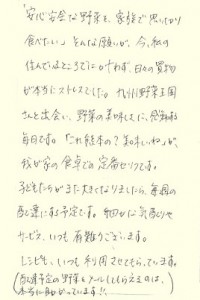 「安心安全な野菜を、家族で思いっきり
食べたい」そんな願いが、今、私の
住んでいるところではかなわず、日々の買物
が本当にストレスでした。九州野菜王国
さんと出会い、野菜の美味しさに、感動の
毎日です。「これ絵本の？美味しいね」が、
我が家の食卓での定番セリフです。
子どもたちがまた大きくなりましたら、毎週の
配達にする予定です。細やかな気配りや
サービス、いつも有難うございます。
レシピも、いつも利用させてもらっています。
（配達予定の野菜をメールしてもらえるのは、
本当に助かっています!!）